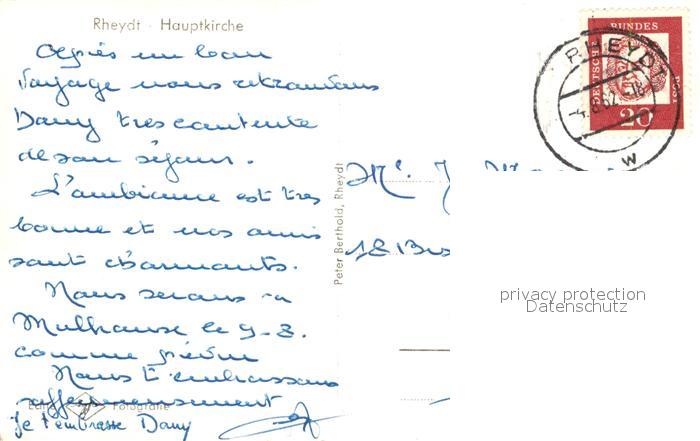 Rheydt · Hauptkirche
Après un bon
Voyage nous retrouvons
Dany tres contente
de son séjour.
L'ambiance est tres
bonne et nos amis
sont charmants.
Nous serons à
Mulhouse le 9-8.
comme prévu
Nous t'embrassons
affectueusement
Je t'embrasse Dany
Fotografie
Peter Berthold, Rheydt
DEUTSCHE BUNDES POST
20
RHEYDT
-4.8.62.-18
w
Mr. J
18 B
privacy protection
Datenschutz